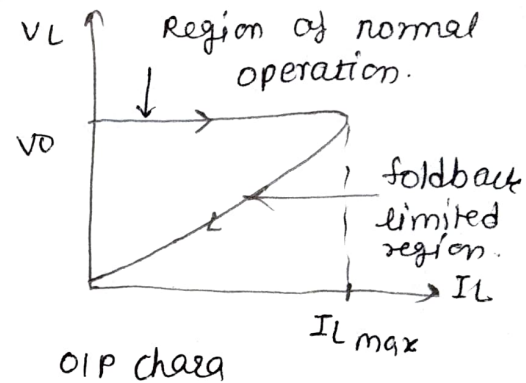 VL
Region of normal
operation.
VO
foldback
limited
region.
IL
IL max
O/P chara